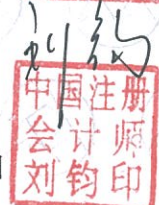 刘钧
中国注册
会计师
刘钧印